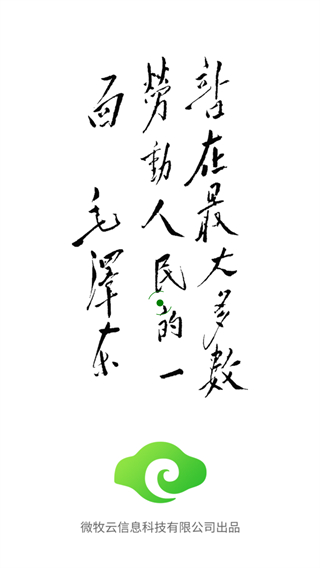 站在最大多数
勞動人民的一
面
毛澤东
微牧云信息科技有限公司出品